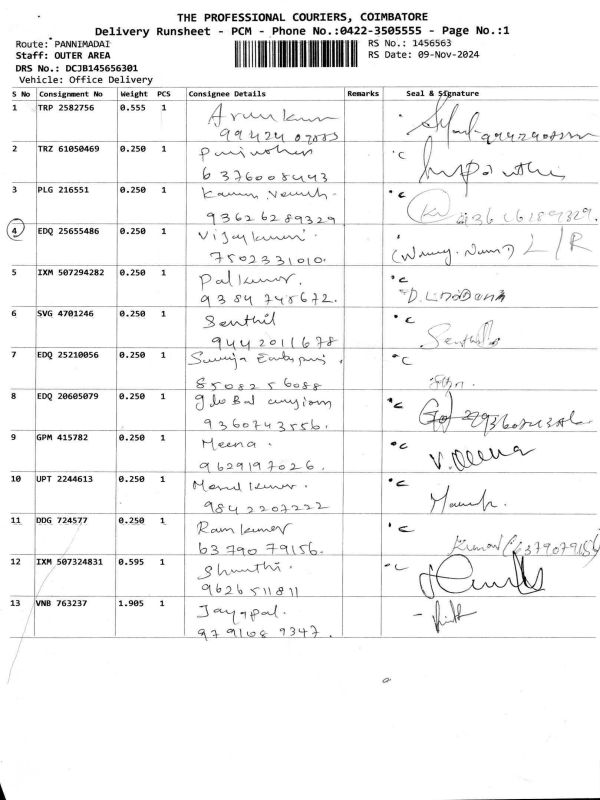 THE PROFESSIONAL COURIERS, COIMBATORE
Delivery Runsheet - PCM - Phone No.:0422-3505555 - Page No.:1
Route: PANNIMADAI
RS No.: 1456563
Staff: OUTER AREA
RS Date: 09-Nov-2024
DRS No.: DCJB145656301
Vehicle: Office Delivery
S No Consignment No Weight PCS Consignee Details Remarks Seal & Signature
1 TRP 2582756 0.555 1 Arun kumar
2 TRZ 61050469 0.250 1
6376008443
3 PLG 216551 0.250 1
9362628 9329
4 EDQ 25655486 0.250 1 Vijaykumar L/R
7502331010.
5 IXM 507294282 0.250 1 Palkumar.
9384 748672.
6 SVG 4701246 0.250 1 Senthil
9442011678
7 EDQ 25210056 0.250 1
85082 56088
8 EDQ 20605079 0.250 1
9360743556.
9 GPM 415782 0.250 1 Meena. V. Meena
9629197026.
10 UPT 2244613 0.250 1
9842207222
11 DDG 724577 0.250 1 Ram kumar
63790 79156. 6379079156
12 IXM 507324831 0.595 1 Shanthi.
9626511811
13 VNB 763237 1.905 1 Jayapal.
979168 9347.